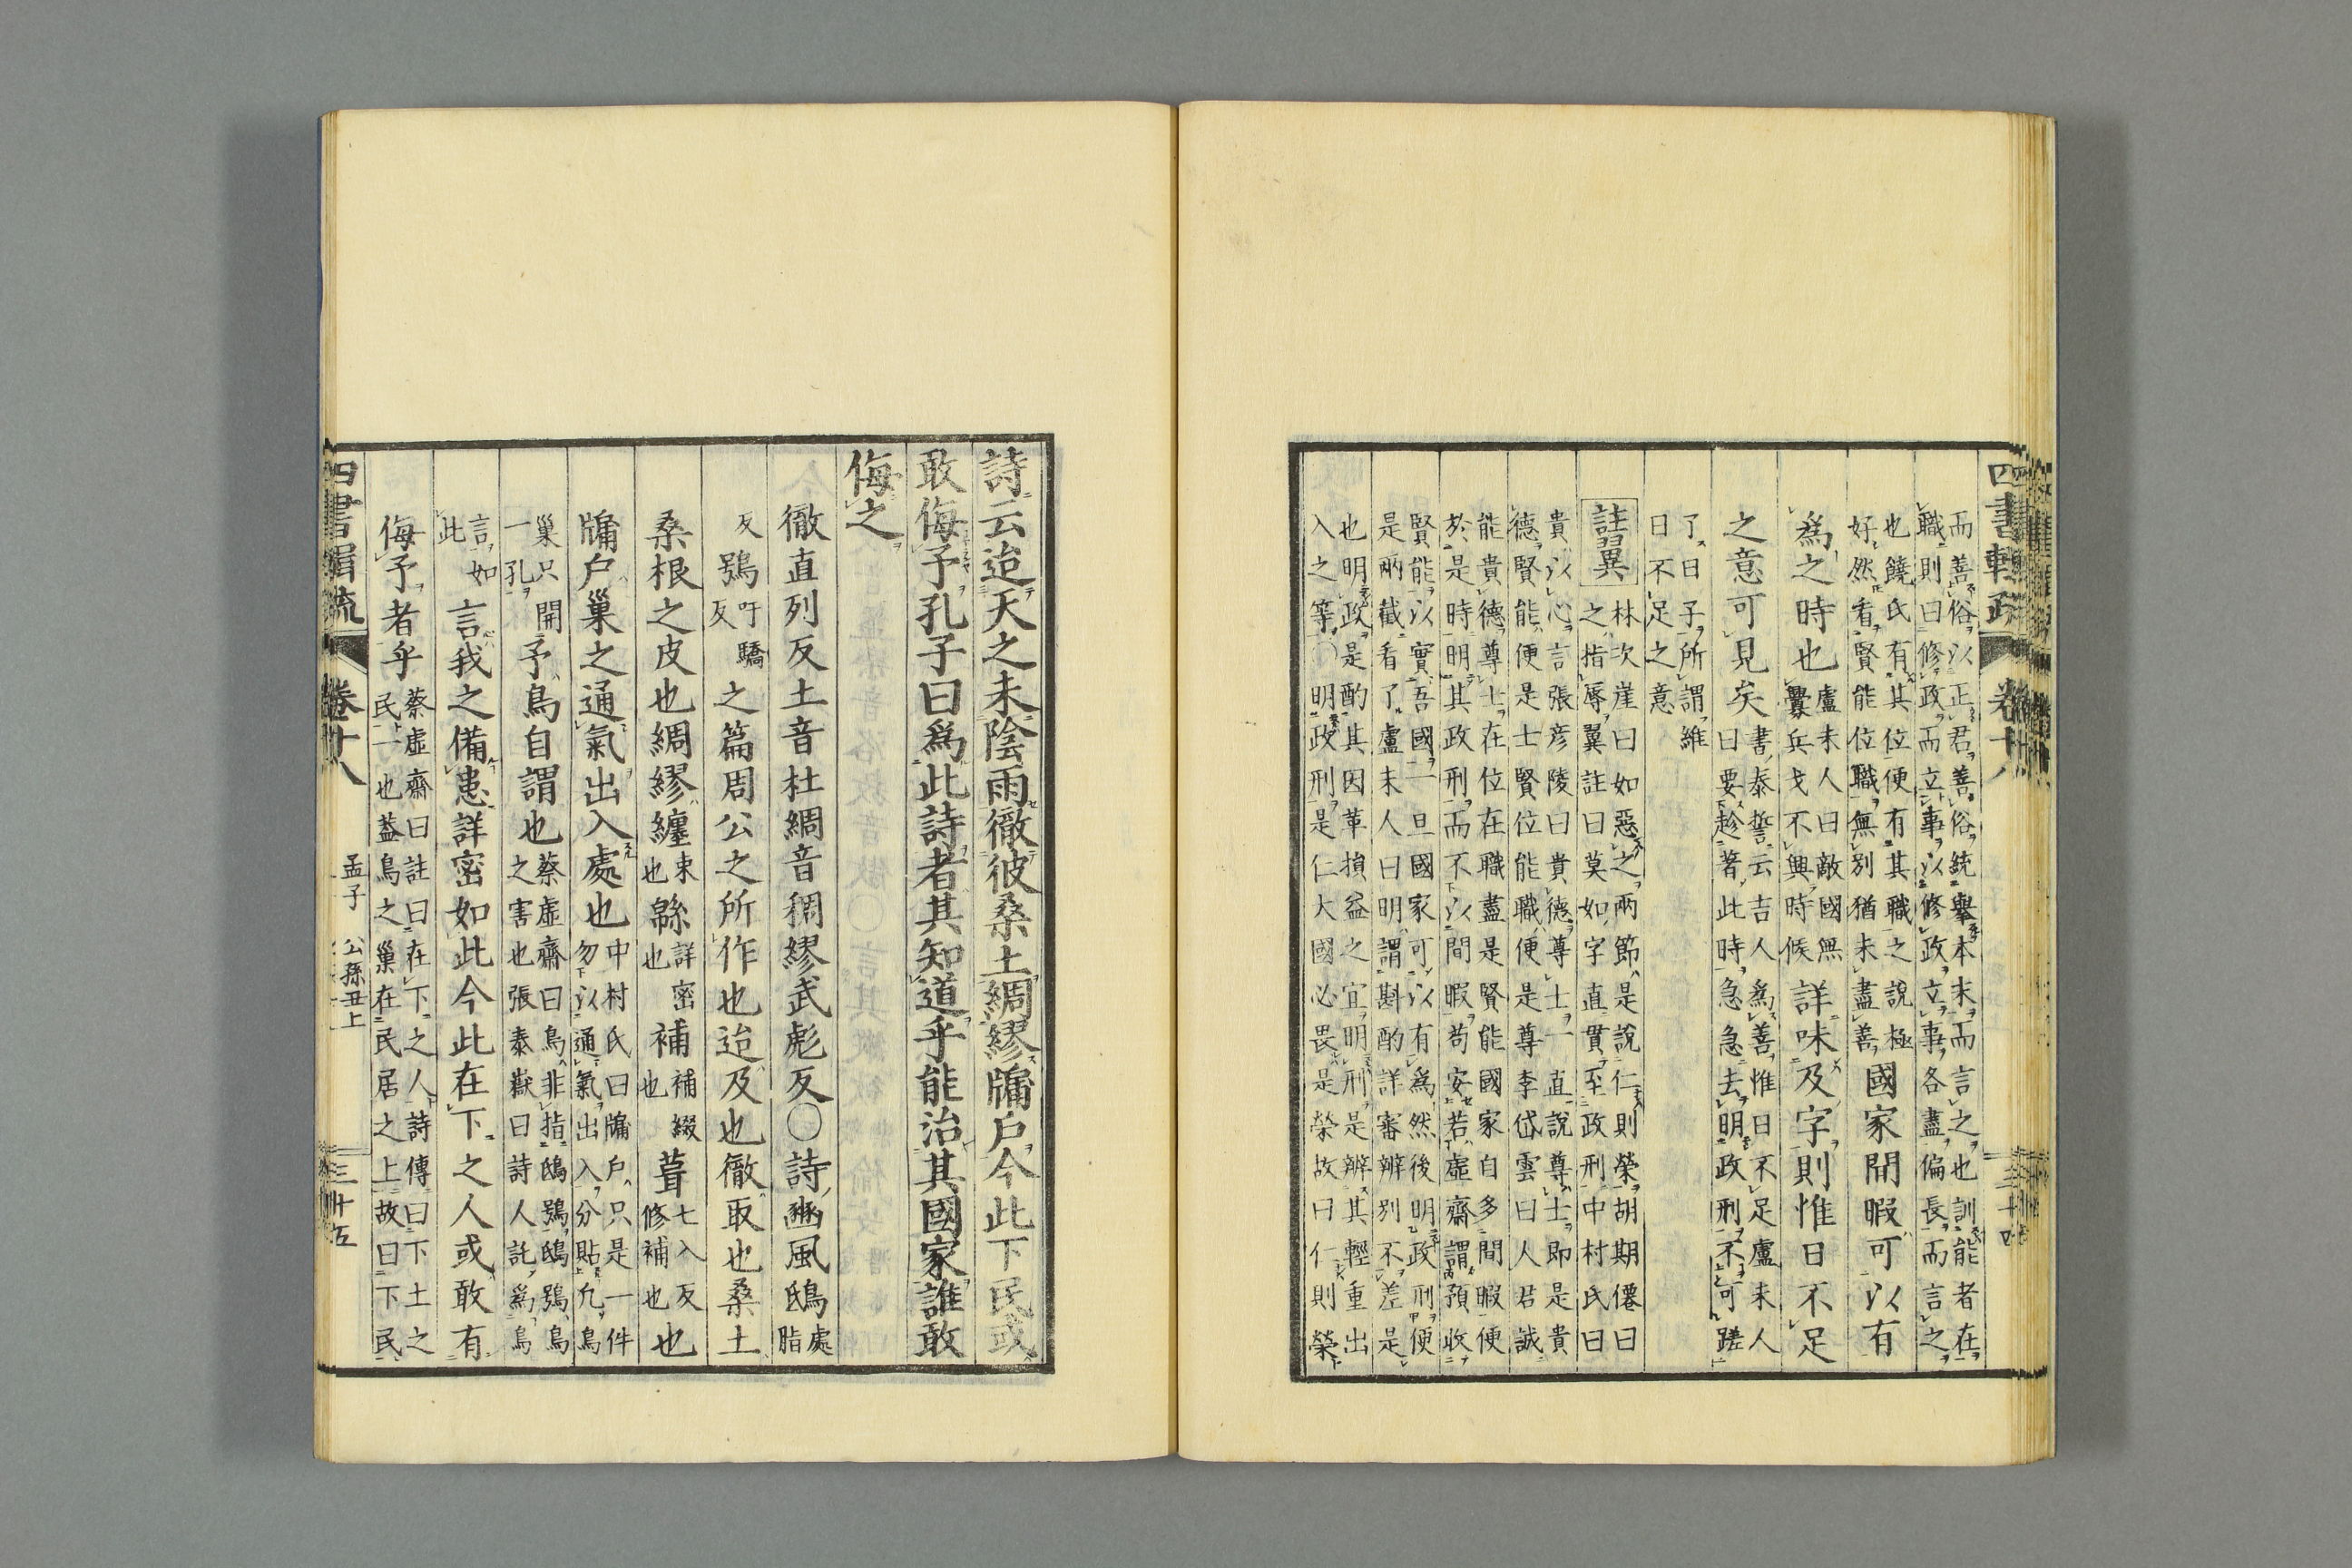 四書輯疏 卷十八 三十四
而善俗以正君善俗統舉本末而言之也訓能者在
職則曰修政而立事以修政立事各盡偏長而言之
也饒氏有其位便有其職之說極
好然看賢能位職無別猶未盡善 國家閒暇可以有
爲之時也 盧未人曰敵國無
釁兵戈不興時候 詳味及字則惟日不足
之意可見矣 書泰誓云吉人爲善惟日不足盧未人
曰要趁著此時急急去明政刑不可蹉
了日子所謂維
日不足之意
註翼 林次崖曰如惡之兩節是說仁則榮胡期僊曰
之指辱翼註曰莫如字直貫至政刑中村氏曰
貴以心言張彦陵曰貴德尊士一直說尊士即是貴
德賢能便是士賢位能職便是尊李岱雲曰人君誠
能貴德尊士在位在職盡是賢能國家自多間暇便
於是時明其政刑而不以間暇苟安若虛齋謂預收
賢能以實吾國一旦國家可以有爲然後明政刑便
是兩截看了盧未人曰明謂斟酌詳審辨別不差是
也明政是酌其因革損益之宜明刑是辨其輕重出
入之等〇明政刑是仁大國必畏是榮故曰仁則榮
詩云迨天之未陰雨徹彼桑土綢繆牖戶今此下民或
敢侮予孔子曰爲此詩者其知道乎能治其國家誰敢
侮之
徹直列反土音杜綢音稠繆武彪反〇詩豳風鴟 處
脂
反 鴞 吁驕
反 之篇周公之所作也迨及也徹取也桑土
桑根之皮也綢繆纏 束
也 緜 詳密
也 補 補綴
也 葺 七入反
修補也 也
牖戶巢之通氣出入處也 中村氏曰牖戶只是一件
勿以通氣出入分貼凢鳥
巢只開
一孔 予鳥自謂也 蔡虛齋曰鳥非指鴟鴞鴟鴞鳥
之害也張泰嶽曰詩人託爲鳥
言如
此 言我之備患詳密如此今此在下之人或敢有
侮予者乎 蔡虛齋曰註曰在下之人詩傳曰下土之
民一也葢鳥之巢在民居之上故曰下民
四書輯疏 卷十八 孟子 公孫丑上 三十五